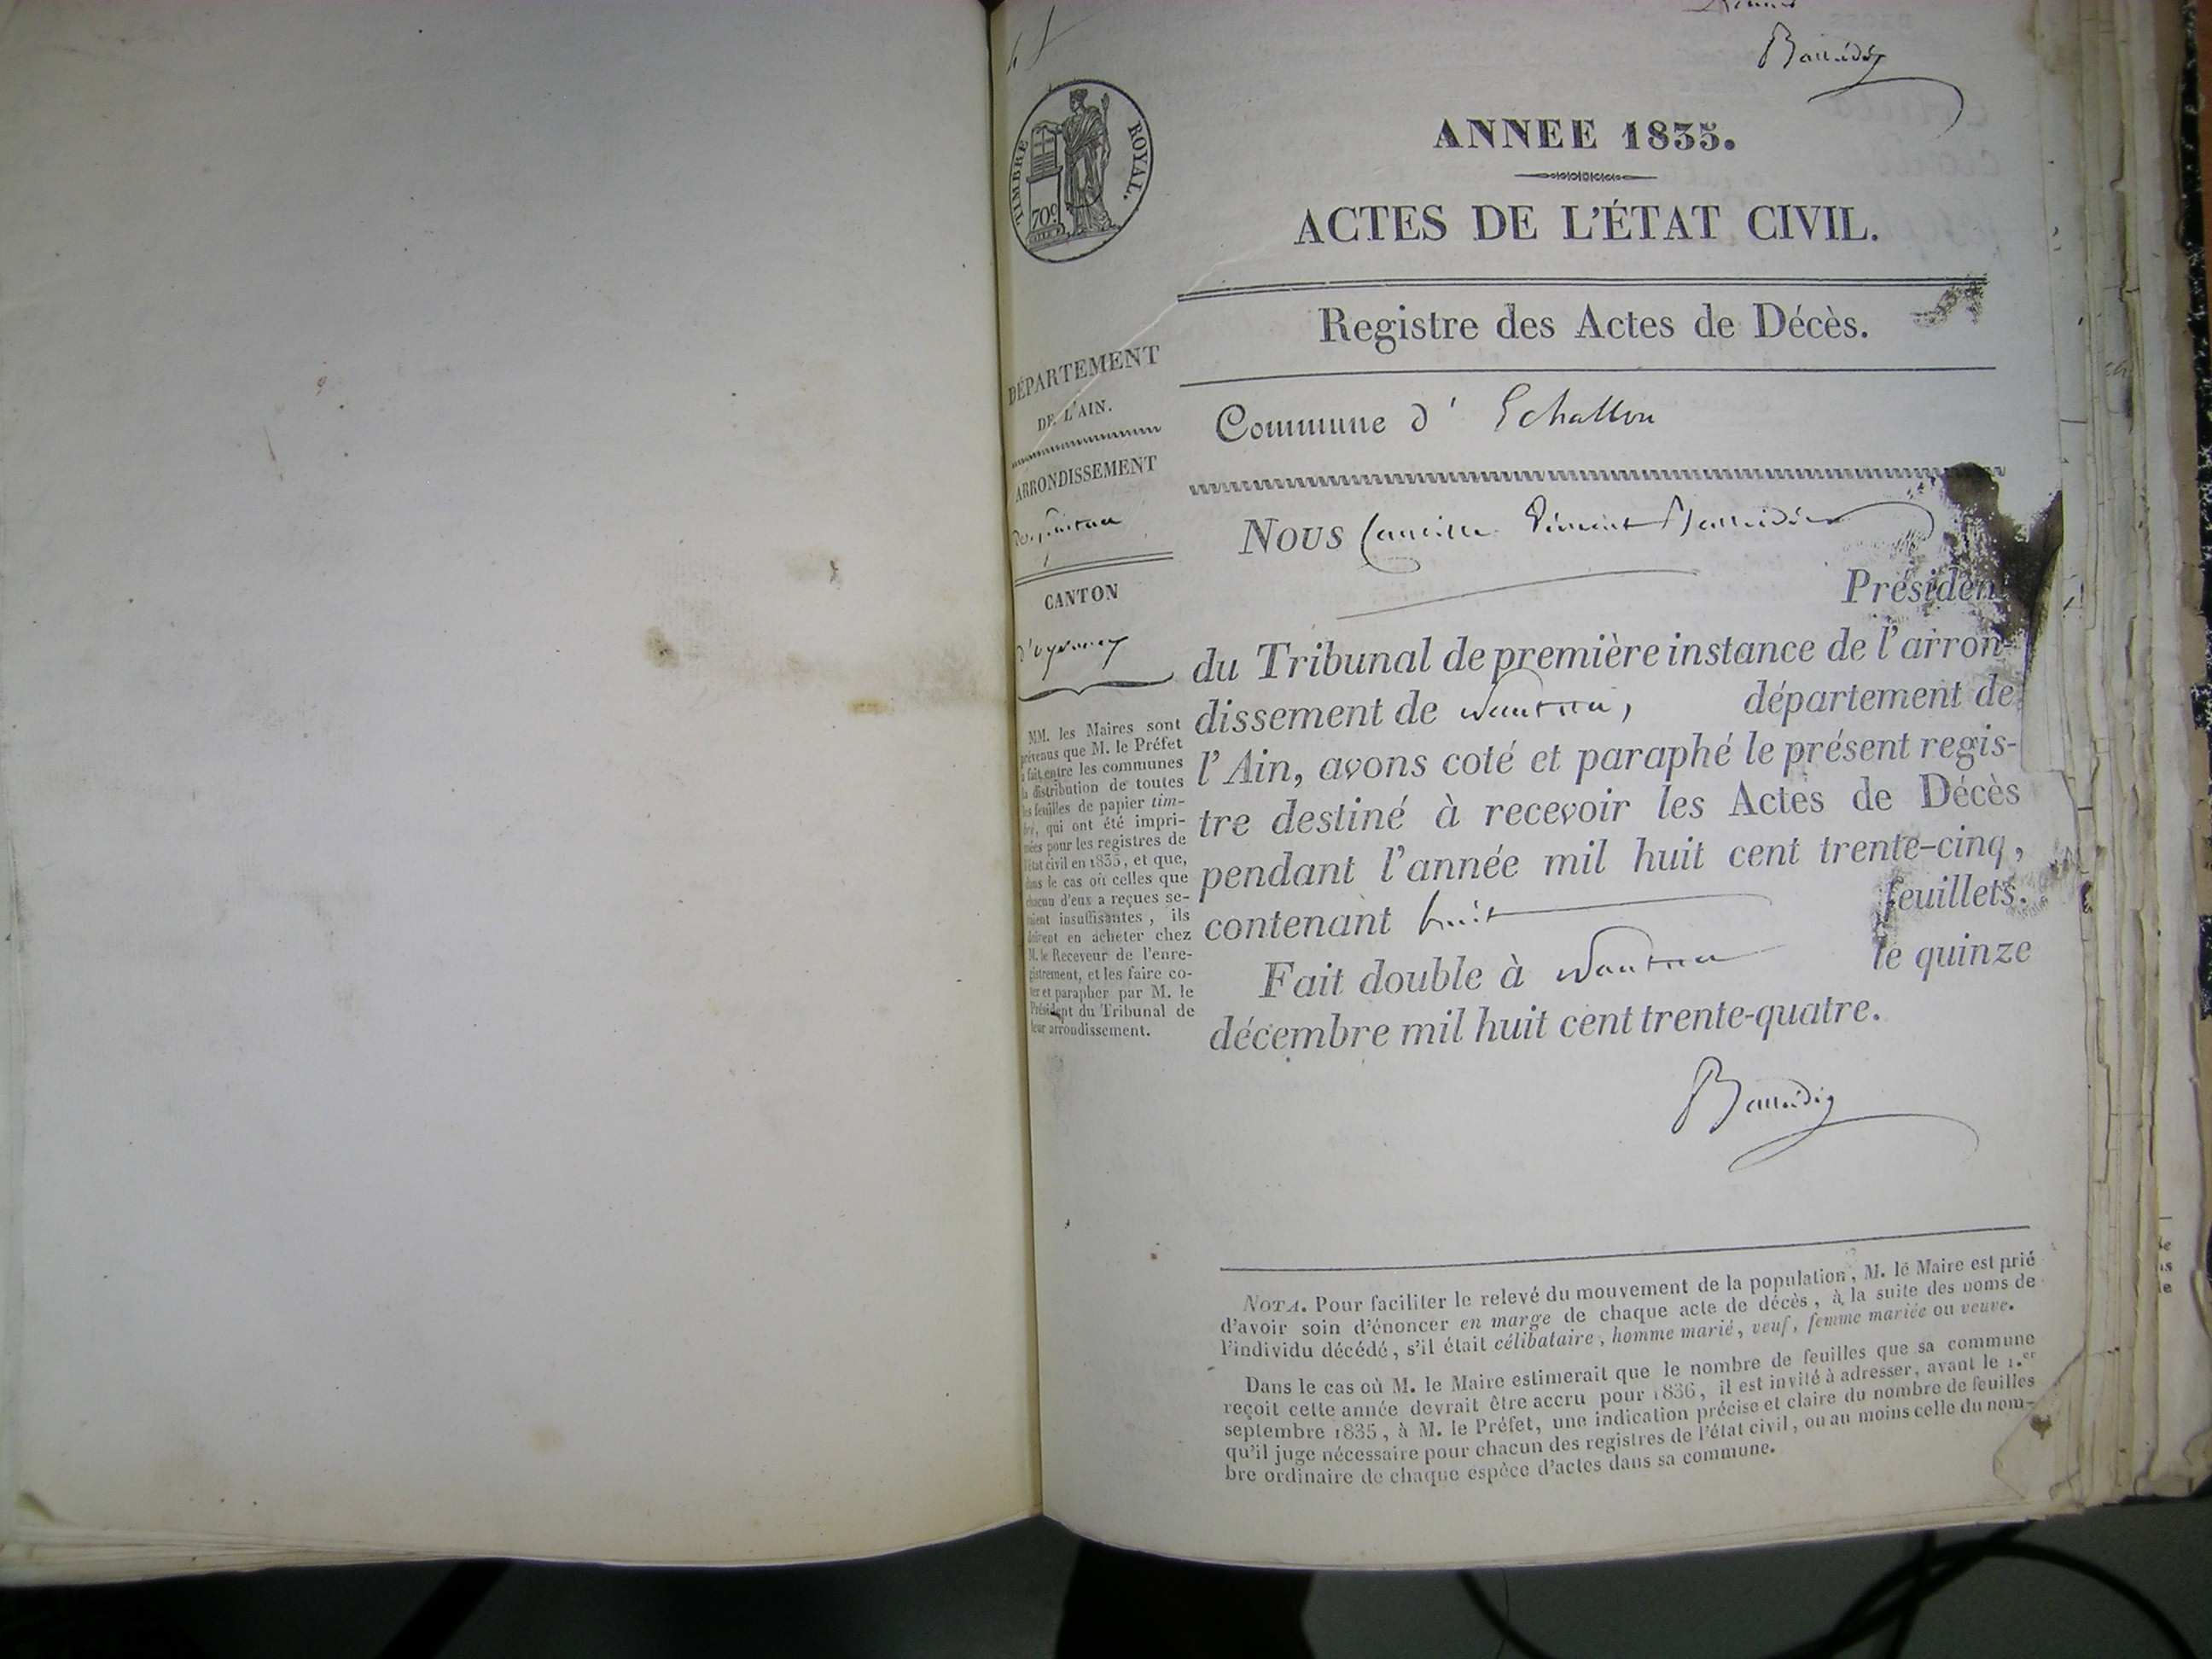 Baudin
ANNEE 1835.
ACTES DE L'ÉTAT CIVIL.
Registre des Actes de Décès.
Commune d' Echallon
Nous Vincent
Président
du Tribunal de première instance de l'arron-
dissement de Nantua, département de
l'Ain, avons coté et paraphé le présent regis-
tre destiné à recevoir les Actes de Décès
pendant l'année mil huit cent trente-cinq,
contenant huit feuillets.
Fait double à Nantua le quinze
décembre mil huit cent trente-quatre.
NOTA. Pour faciliter le relevé du mouvement de la population, M. le Maire est prié
d'avoir soin d'énoncer en marge de chaque acte de décès, à la suite des noms de
l'individu décédé, s'il était célibataire, homme marié, veuf, femme mariée ou veuve.
Dans le cas où M. le Maire estimerait que le nombre de feuilles que sa commune
reçoit cette année devrait être accru pour 1836, il est invité à adresser, avant le 1.er
septembre 1835, à M. le Préfet, une indication précise et claire du nombre de feuilles
qu'il juge nécessaire pour chacun des registres de l'état civil, ou au moins celle du nom-
bre ordinaire de chaque espèce d'actes dans sa commune.
TIMBRE ROYAL.
70c
DÉPARTEMENT
DE L'AIN.
ARRONDISSEMENT
CANTON
d'oyonnax
MM. les Maires sont
prévenus que M. le Préfet
a fait entre les communes
la distribution de toutes
les feuilles de papier tim-
bré, qui ont été impri-
mées pour les registres de
l'état civil en 1835, et que,
dans le cas où celles que
chacun d'eux a reçues se-
raient insuffisantes, ils
doivent en acheter chez
M. le Receveur de l'enre-
gistrement, et les faire co-
ter et parapher par M. le
Président du Tribunal de
leur arrondissement.